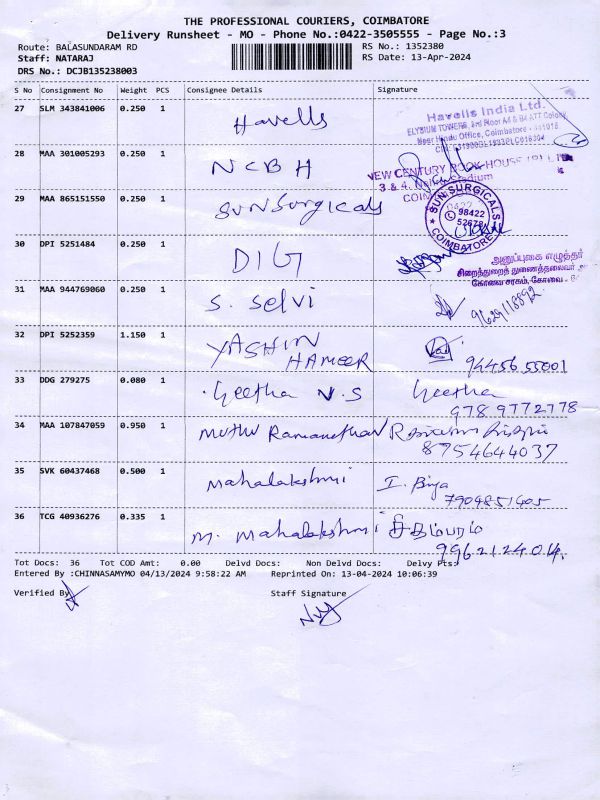 THE PROFESSIONAL COURIERS, COIMBATORE
Delivery Runsheet - MO - Phone No.:0422-3505555 - Page No.:3
Route: BALASUNDARAM RD
RS No.: 1352380
Staff: NATARAJ
RS Date: 13-Apr-2024
DRS No.: DCJB135238003
S No Consignment No Weight PCS Consignee Details Signature
27 SLM 343841006 0.250 1 Havells
Havells India Ltd.
ELYSIUM TOWERS, 3rd Floor A4 & B4 ATT Colony
Near Hindu Office, Coimbatore
28 MAA 301005293 0.250 1 NCBH
NEW CENTURY BOOK-HOUSE (P) LTD
3 & 4, Stadium
29 MAA 865151550 0.250 1 SUN Surgicals
SUN SURGICALS
98422
COIMBATORE
30 DPI 5251484 0.250 1 DIG
அனுப்புகை எழுத்தர்
சிறைத்துறை துணைத்தலைவர்
கோவை சரகம், கோவை -
31 MAA 944769060 0.250 1 S. Selvi
9629118892
32 DPI 5252359 1.150 1 YASHIN HAMEER 94456 55001
33 DDG 279275 0.080 1 Geetha N.S Geetha
9789772778
34 MAA 107847059 0.950 1 Muthu Ramanathan
8754644037
35 SVK 60437468 0.500 1 Mahalakshmi I. Priya
7904851405
36 TCG 40936276 0.335 1 M. Mahalakshmi சிதம்பரம்
9962124014
Tot Docs: 36 Tot COD Amt: 0.00 Delvd Docs: Non Delvd Docs: Delvy Pts:
Entered By :CHINNASAMYMO 04/13/2024 9:58:22 AM Reprinted On: 13-04-2024 10:06:39
Verified By
Staff Signature